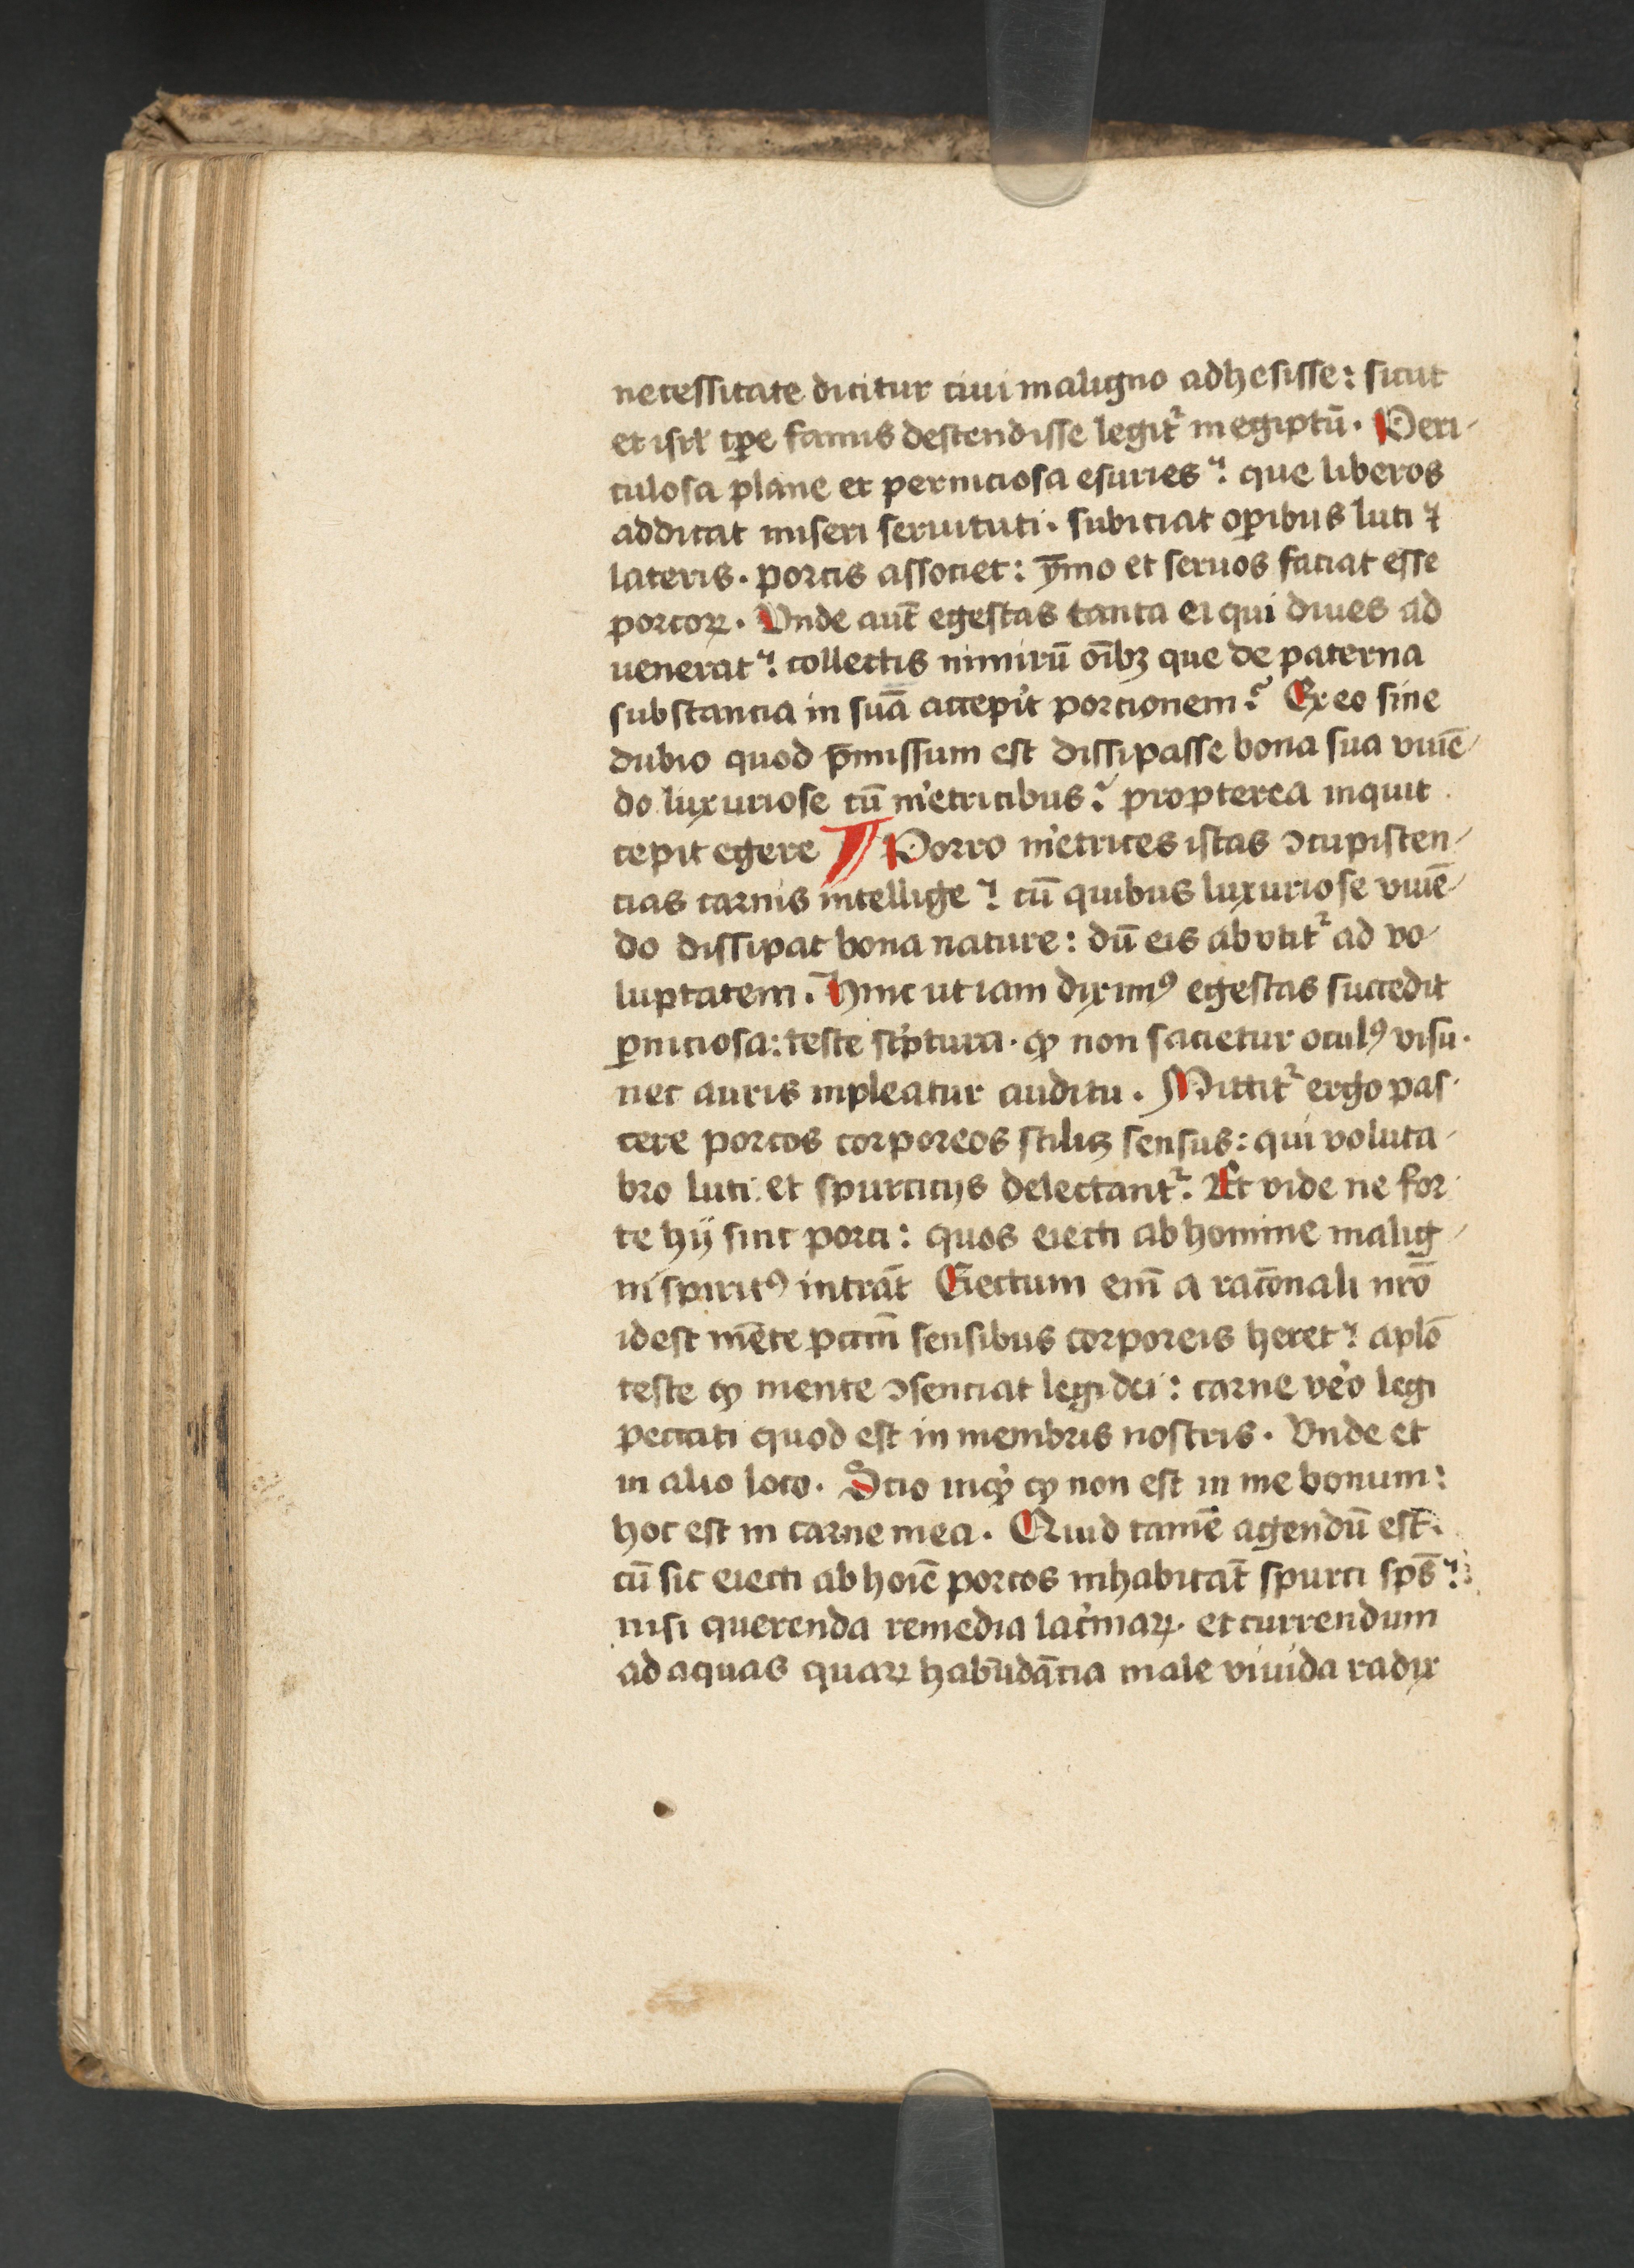 necessitate dicitur ciui maligno adhesisse: sicut
et isrl̕ tp̱e famis descendisse legit᷑ in egiptū. Peri-
culosa plane et perniciosa esuries: que liberos
addicat miseri seruituti. subiciat op̱ibus luti ⁊
lateris. porcis associet: ȳmo et seruos faciat esse
porcoꝝ. Vnde aut̄ egestas tanta ei qui diues ad
uenerat: collectis nimirū oībꝫ que de paterna
substancia in suā accepit porcionem? Ex eo sine
dubio quod p̄missum est dissipasse bona sua viuē-
do luxuriose cū m̕etricibus? propterea inquit
cepit egere ¶ Porro m̕etrices istas ↄcupiscen-
cias carnis intellige: cū quibus luxuriose viuē-
do dissipat bona nature: dū eis abvtit᷑ ad vo-
luptatem. Hinc ut iam diximꝰ egestas succedit
ꝑniciosa: teste sc̕ptura. ꝙ non sacietur oculꝰ visu.
nec auris inpleatur auditu. Mittit᷑ ergo pas-
cere porcos corporeos scilicꝫ sensus: qui voluta-
bro luti et spurcicijs delectant᷑. At vide ne for-
te hij sint porci: quos eiecti ab homine malig-
ni spiritꝰ intrāt Eiectum em̄ a rac̄onali nr̄o
idest mēte pctm̄ sensibus corporeis heret: apl̄o
teste ꝙ mente ↄsenciat legi dei: carne ve̕o legi
peccati quod est in membris nostris. Vnde et
in alio loco. Scio inqͥ ꝙ non est in me bonum:
hoc est in carne mea. Quid tamē agendū est.
cū sic eiecti ab hoīe porcos inhabitāt spurci sp̄s:
nisi querenda remedia lac̕maꝝ. et currendum
ad aquas quaꝝ habūdācia male viuida radix